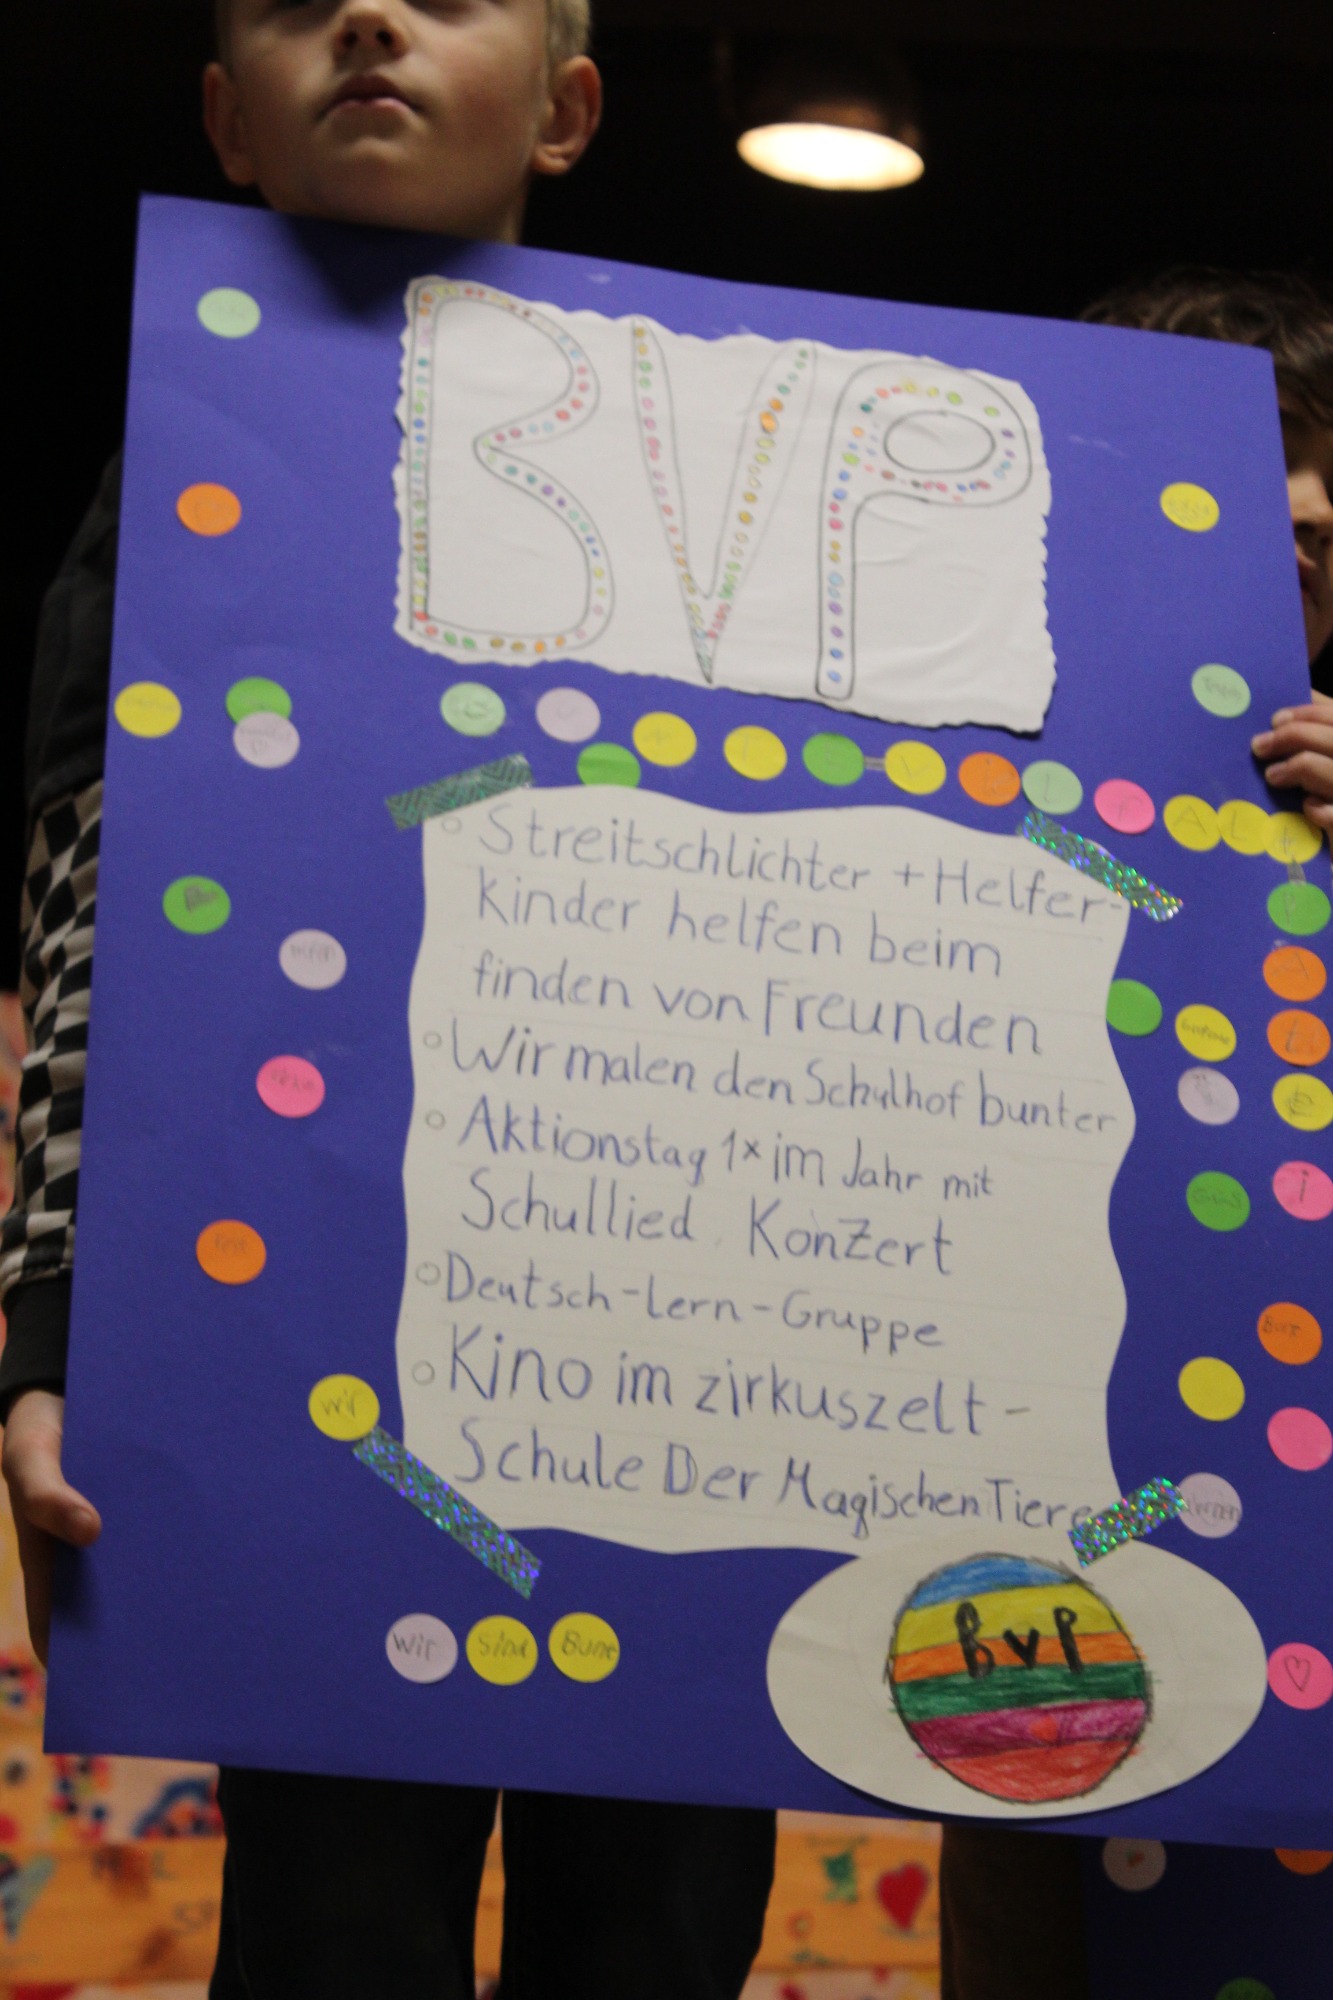 BVP
° Streitschlichter + Helfer-
kinder helfen beim
finden von Freunden
° Wir malen den Schulhof bunter
° Aktionstag 1x im Jahr mit
Schullied Konzert
° Deutsch-Lern-Gruppe
° Kino im zirkuszelt -
Schule Der Magischen Tiere
wir
Wir Sind Bunt
BvP